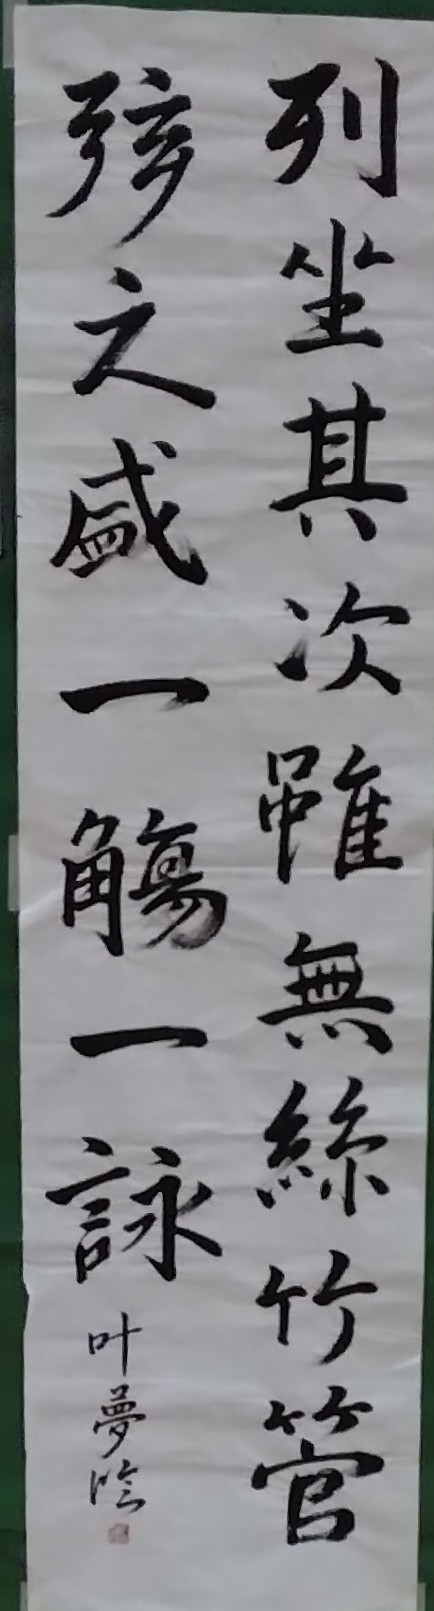 列坐其次雖無絲竹管
弦之盛一觴一詠
叶夢